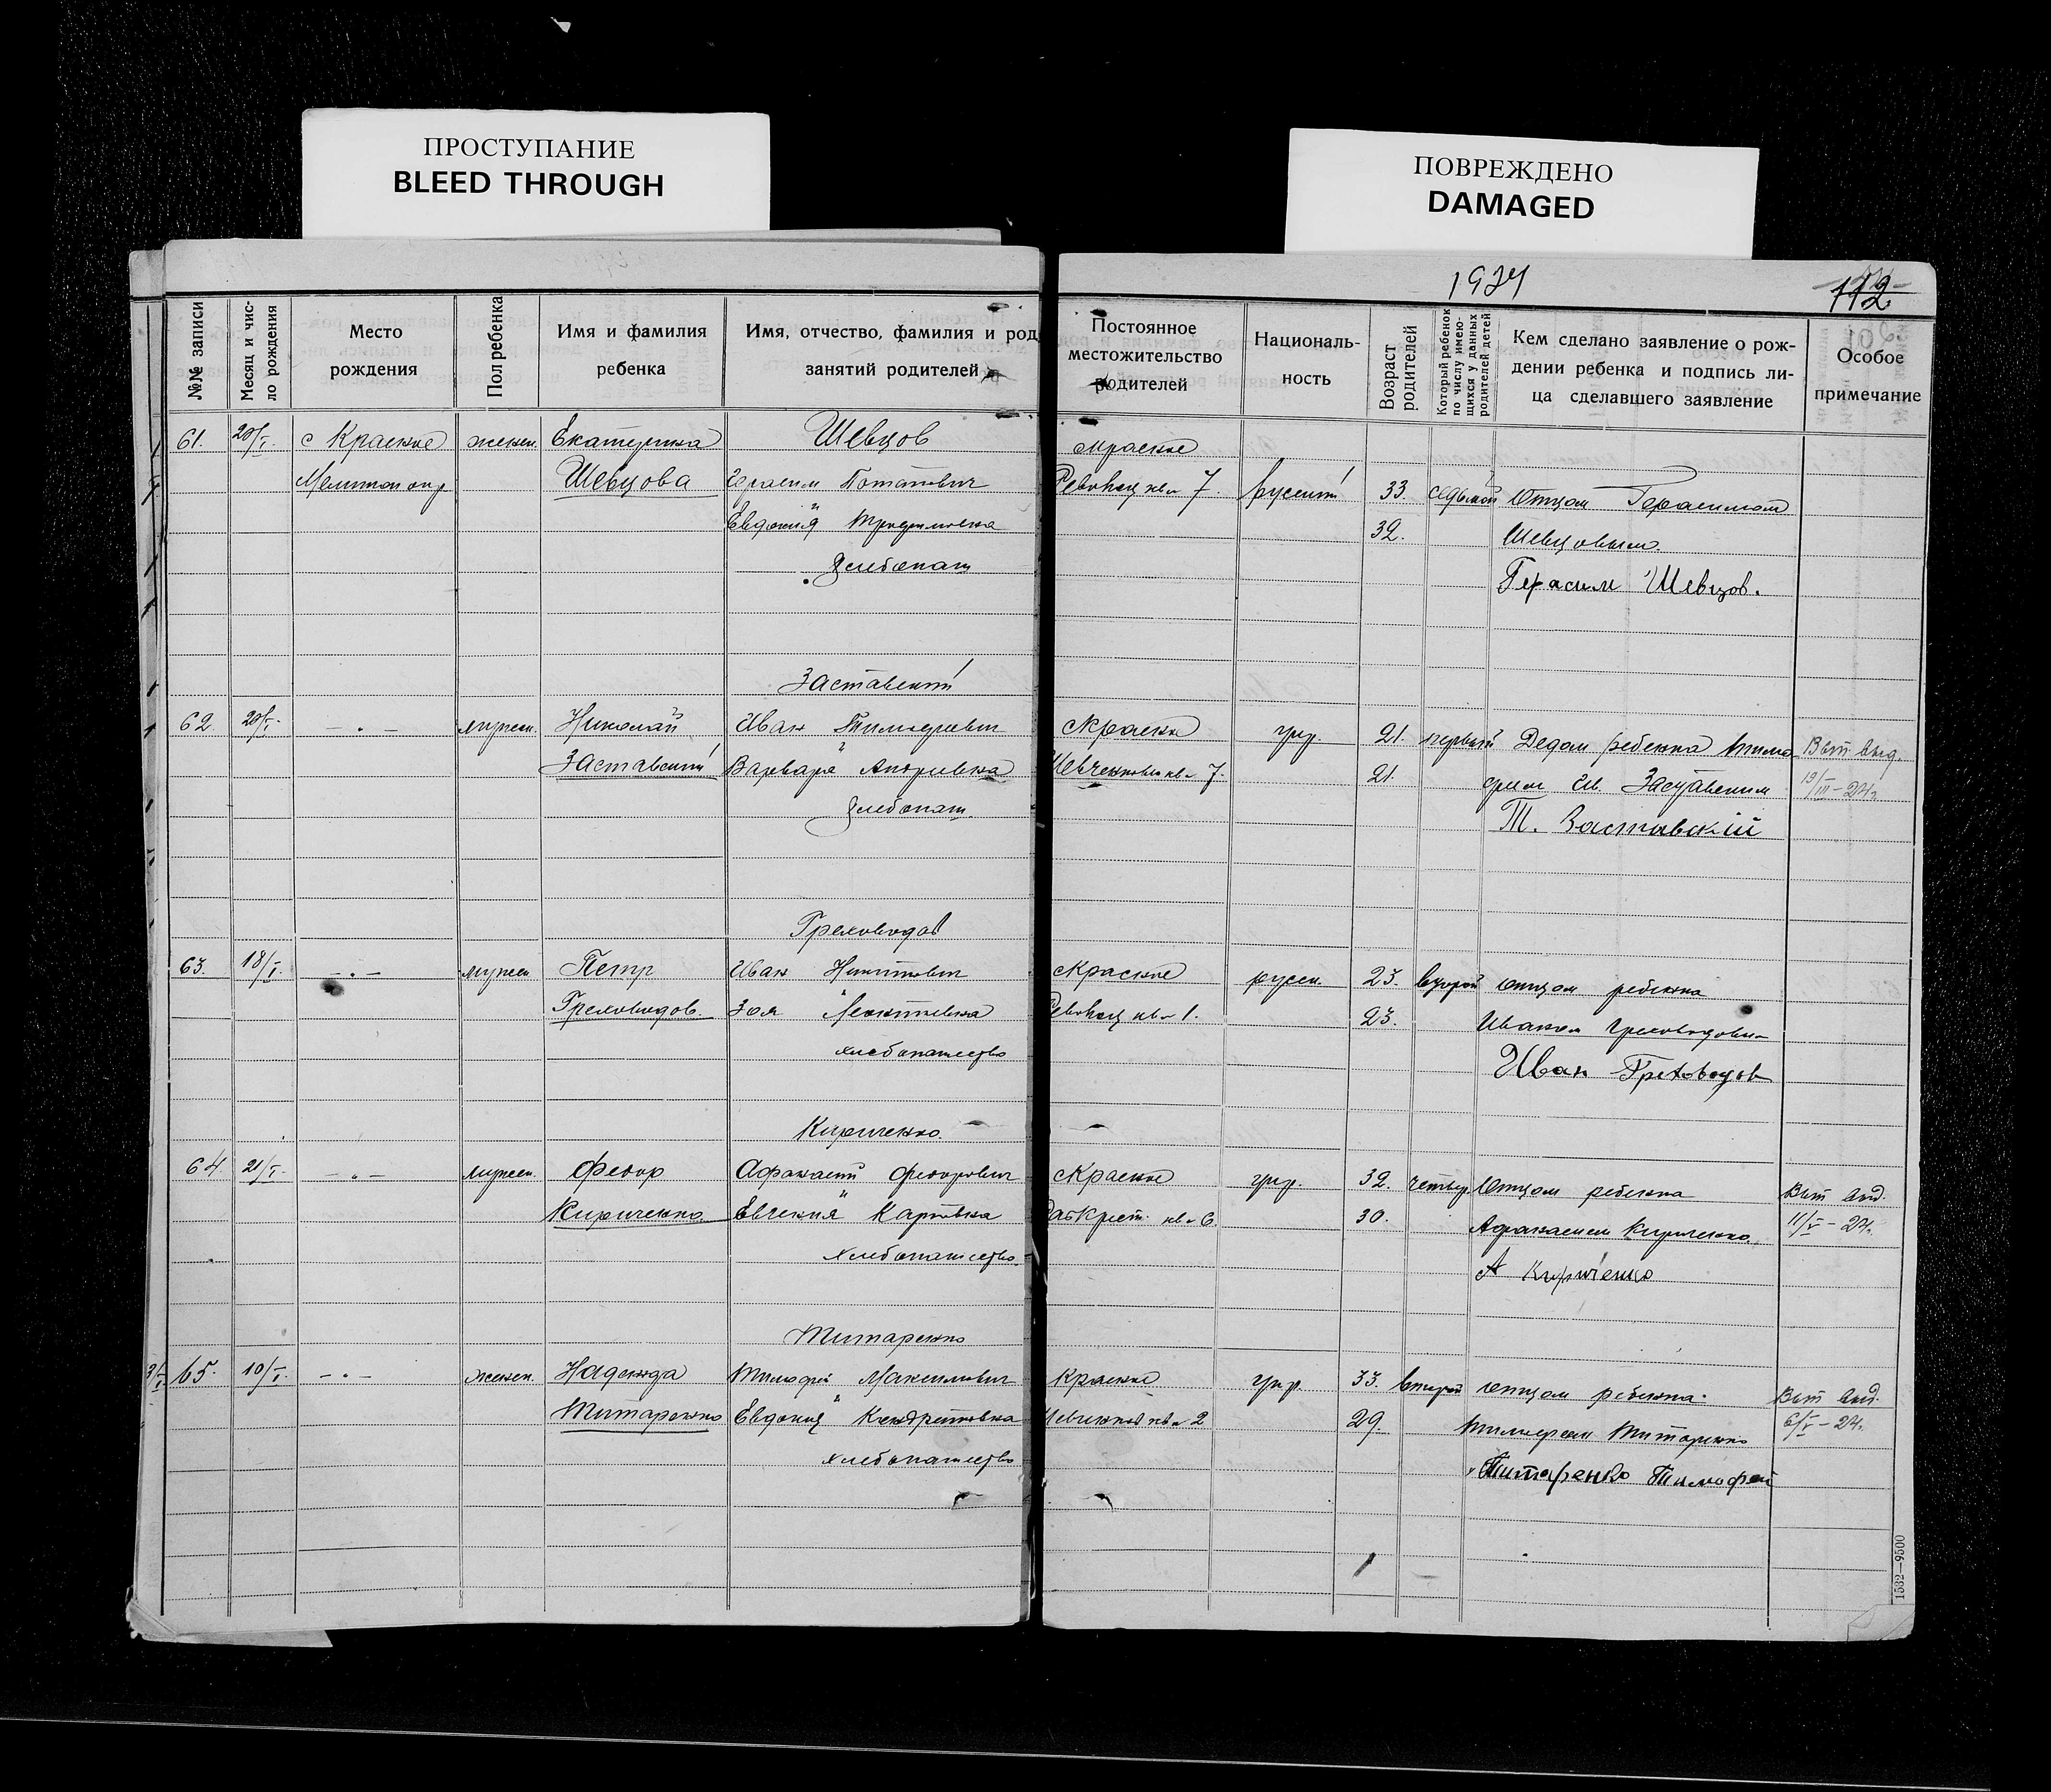 ПРОСТУПАНИЕ
BLEED THROUGH
ПОВРЕЖДЕНО
DAMAGED
1924
112
№№ записи
Месяц и чис-
ло рождения
Место
рождения
Пол ребенка
Имя и фамилия
ребенка
Имя, отчество, фамилия и род
занятий родителей
Постоянное
местожительство
родителей
Националь-
ность
Возраст
родителей
Который ребенок
по числу имею-
щихся у данных
родителей детей
Кем сделано заявление о рож-
дении ребенка и подпись ли-
ца сделавшего заявление
Особое
примечание
61. 20/I. с Краское женск. Екатерина Шевцов с Краское
Мелитоп окр Шевцова Герасим Потапович 7. русский 33. седьмой Отцом Герасимом
Евдокия Трофимовна 32. Шевцовым.
Хлебопаш
Герасим Шевцов.
Заставский
62. 20/I. — " — мужск. Николай Иван Тимофеевич с Краское укр. 21. первый Дедом ребенка Тимо Вып. выд.
Заставский Варвара Андреевна Шевченков кв. 7. 21. феем Заставским 19/III-24г
Хлебопаш.
Т. Заставскій
Греховодов
63. 18/I. — " — мужск Петр Иван Никитович с Краское русск. 23. второй Отцом ребенка
Греховодов. Зоя кв. 1. 23. Иваном Греховодовым
хлебопашество
Иван Греховодов
Кириченко.
64. 21/I. — " — мужск. Федор Афанасий Федорович с Краское укр. 32. четвер. Отцом ребенка Вып выд.
Кириченко Евгения Карповна кв. 6. 30. Афанасием Кириченко 11/V-24г.
хлебопашество.
А Кириченко
Титаренко
65. 10/I. — " — женск. Надежда Тимофей Максимович Краское укр. 33. второй Отцом ребенка Вып выд.
Титаренко Евдокия Кондратовна кв. 2 29. Тимофеем Титаренко 6/V-24г.
хлебопашество
Титаренко Тимофей
1532—9500